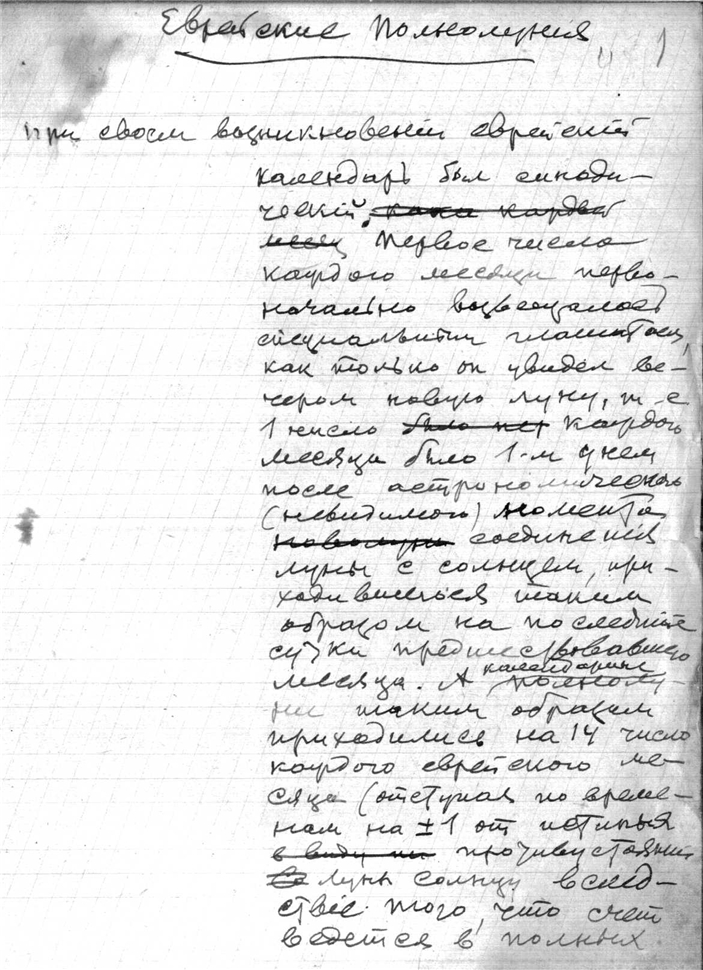 Еврейские полнолунія
1
При своем возникновеніи еврейскій
календарь был синоди-
ческій. каки каждый
месяц Первое число
каждого месяца перво-
начально возвещалось
специальным глашатаем,
как только он увидел ве-
чером новую луну, т-е
1 число было нет каждого
месяца было 1-м днем
после астрономическаго
(невидимого) момента
новолуни соединенія
луны с солнцем, при-
ходившегося таким
образом на последніе
сутки предшествовавшего
месяца. А календарные полнолу-
ния таким образом
приходились на 14 число
каждого еврейского ме-
сяца (отступая по време-
нам на ±1 от истиныя
в виду ни противустоянія
луны солнцу вслед-
ствіе того, что счет
ведется в полных